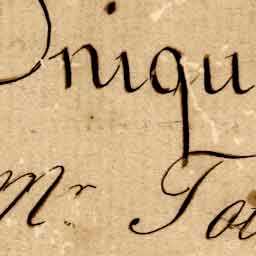 Oniqu
Mr Tou